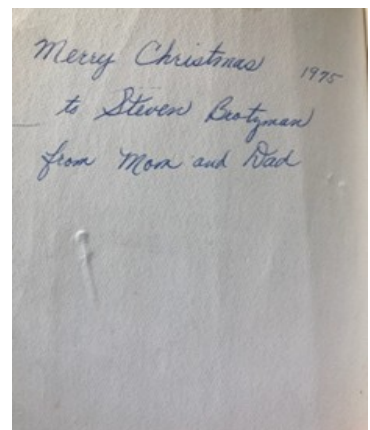 Merry Christmas 1975
to Steven Brotzman
from Mom and Dad